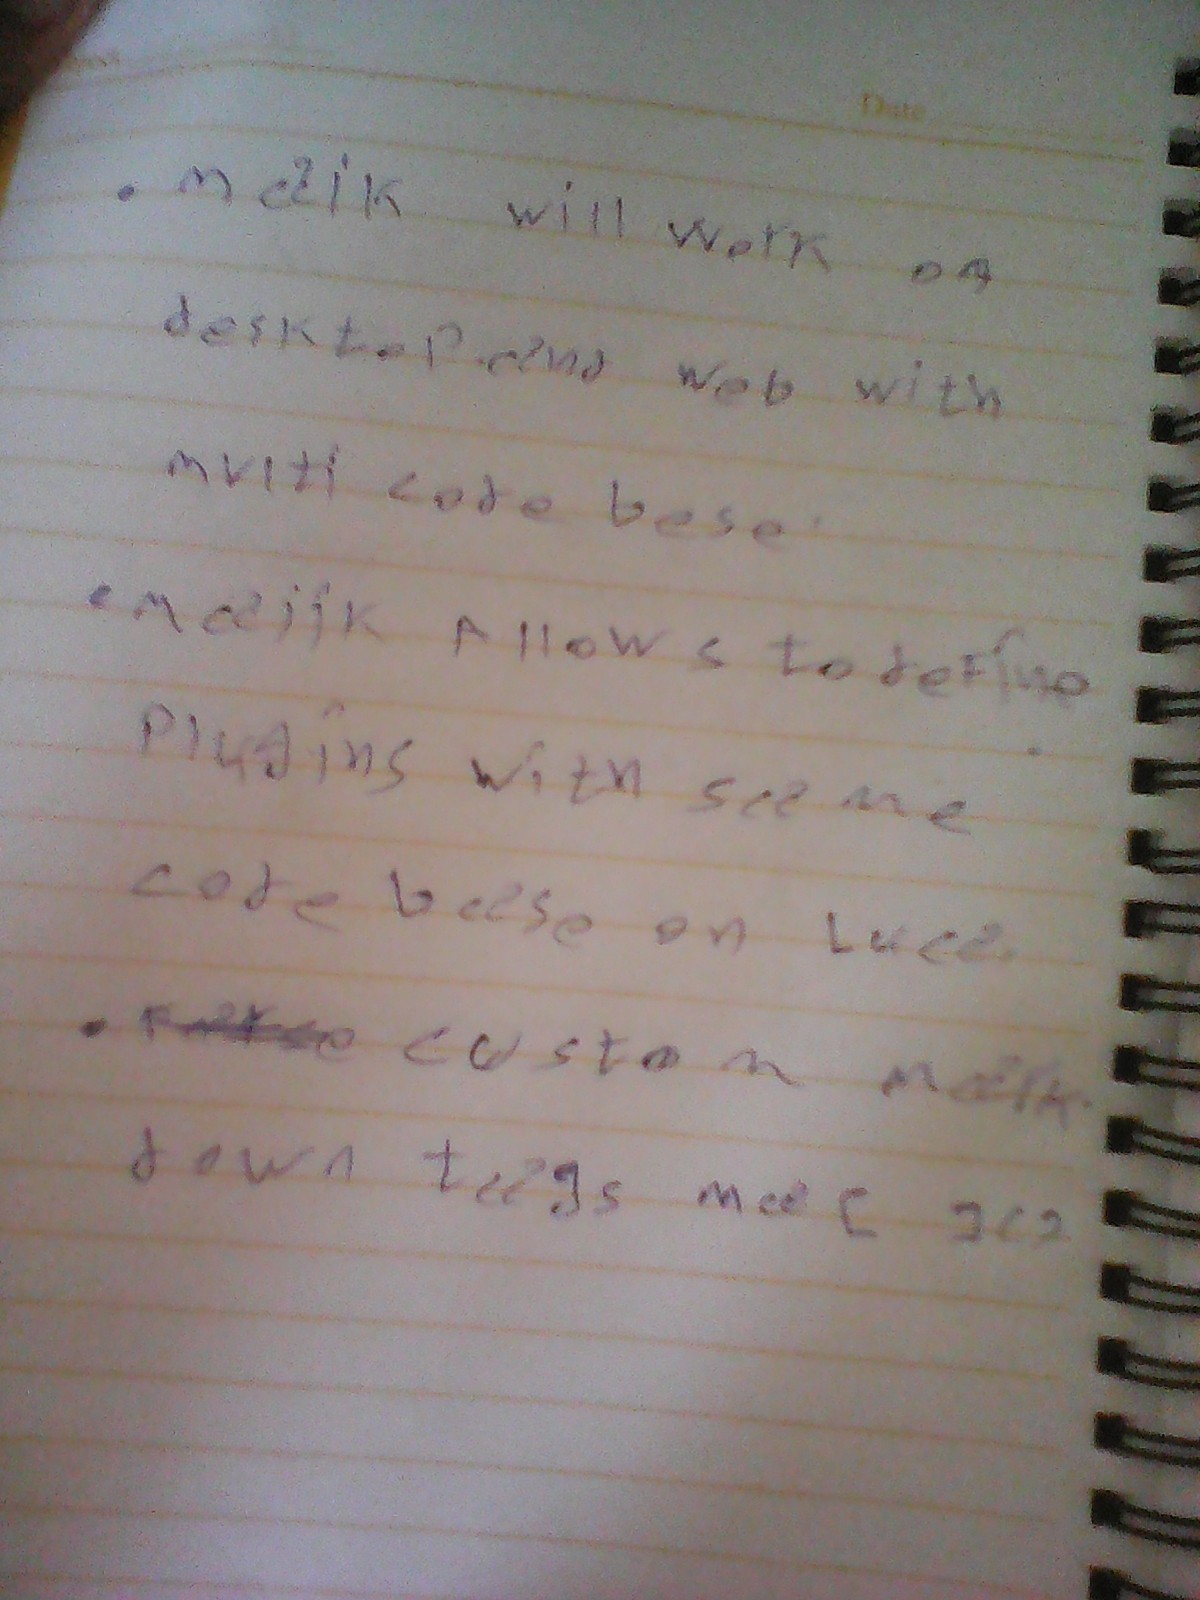 Date
• maik will work on
desktop and web with
multi code bese.
• maijk Allows to define
Plugins with same
code base on Luaa.
• custom maik
down taags